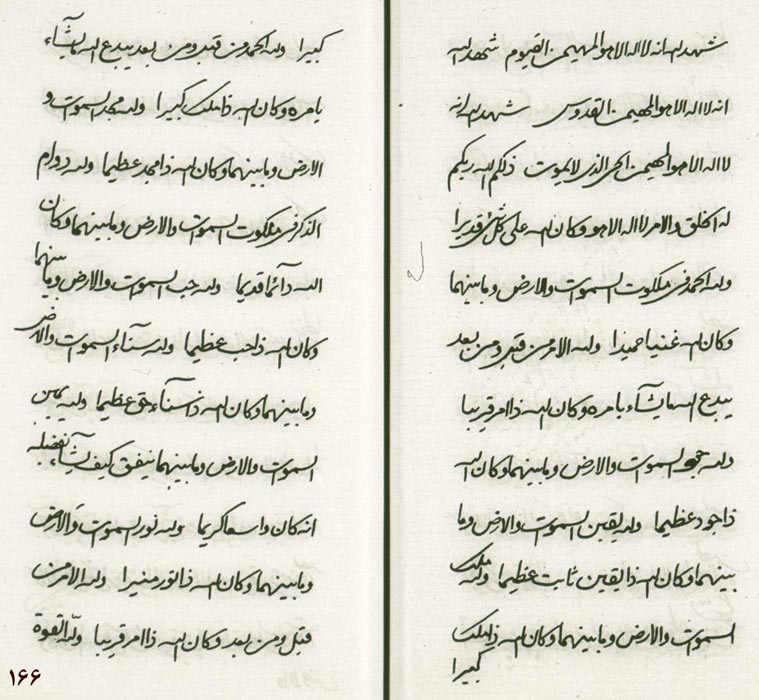 شهد الله انه لا اله الا هو المهيمن القيوم شهد الله
انه لا اله الا هو المهيمن القدوس شهد الله انه
لا اله الا هو المهيمن الحى الذى لا يموت ذلكم الله ربكم
له الخلق والامر لا اله الا هو وكان الله على كل شئ قديرا
ولله الحمد فى ملكوت السموات والارض وما بينهما
وكان الله غنيا حميدا ولله الامر من قبل ومن بعد
يبدع الله ما يشآء بامره وكان الله ذا امر قريبا
ولله جود السموات والارض وما بينهما وكان الله
ذا جود عظيما ولله يقين السموات والارض وما
بينهما وكان الله ذا يقين ثابت عظيما ولله ملك
السموات والارض وما بينهما وكان الله ذا ملك
كبيرا
كبيرا ولله الحمد من قبل ومن بعد يبدع الله ما يشآء
بامره وكان الله ذا ملك كبيرا ولله مجد السموات و
الارض وما بينهما وكان الله ذا مجد عظيما ولله دوام
الذكر فى ملكوت السموات والارض وما بينهما وكان
الله دآئما قديما ولله حب السموات والارض وما بينهما
وكان الله ذا حب عظيما ولله سنآء السموات والارض
وما بينهما وكان الله ذا سنآء حق عظيما ولله يمين
السموات والارض وما بينهما ينفق كيف يشآء بفضله
انه كان واسعا كريما ولله نور السموات والارض
وما بينهما وكان الله ذا نور منيرا ولله الامر من
قبل ومن بعد وكان الله ذا امر قريبا ولله القوة
١٦٦